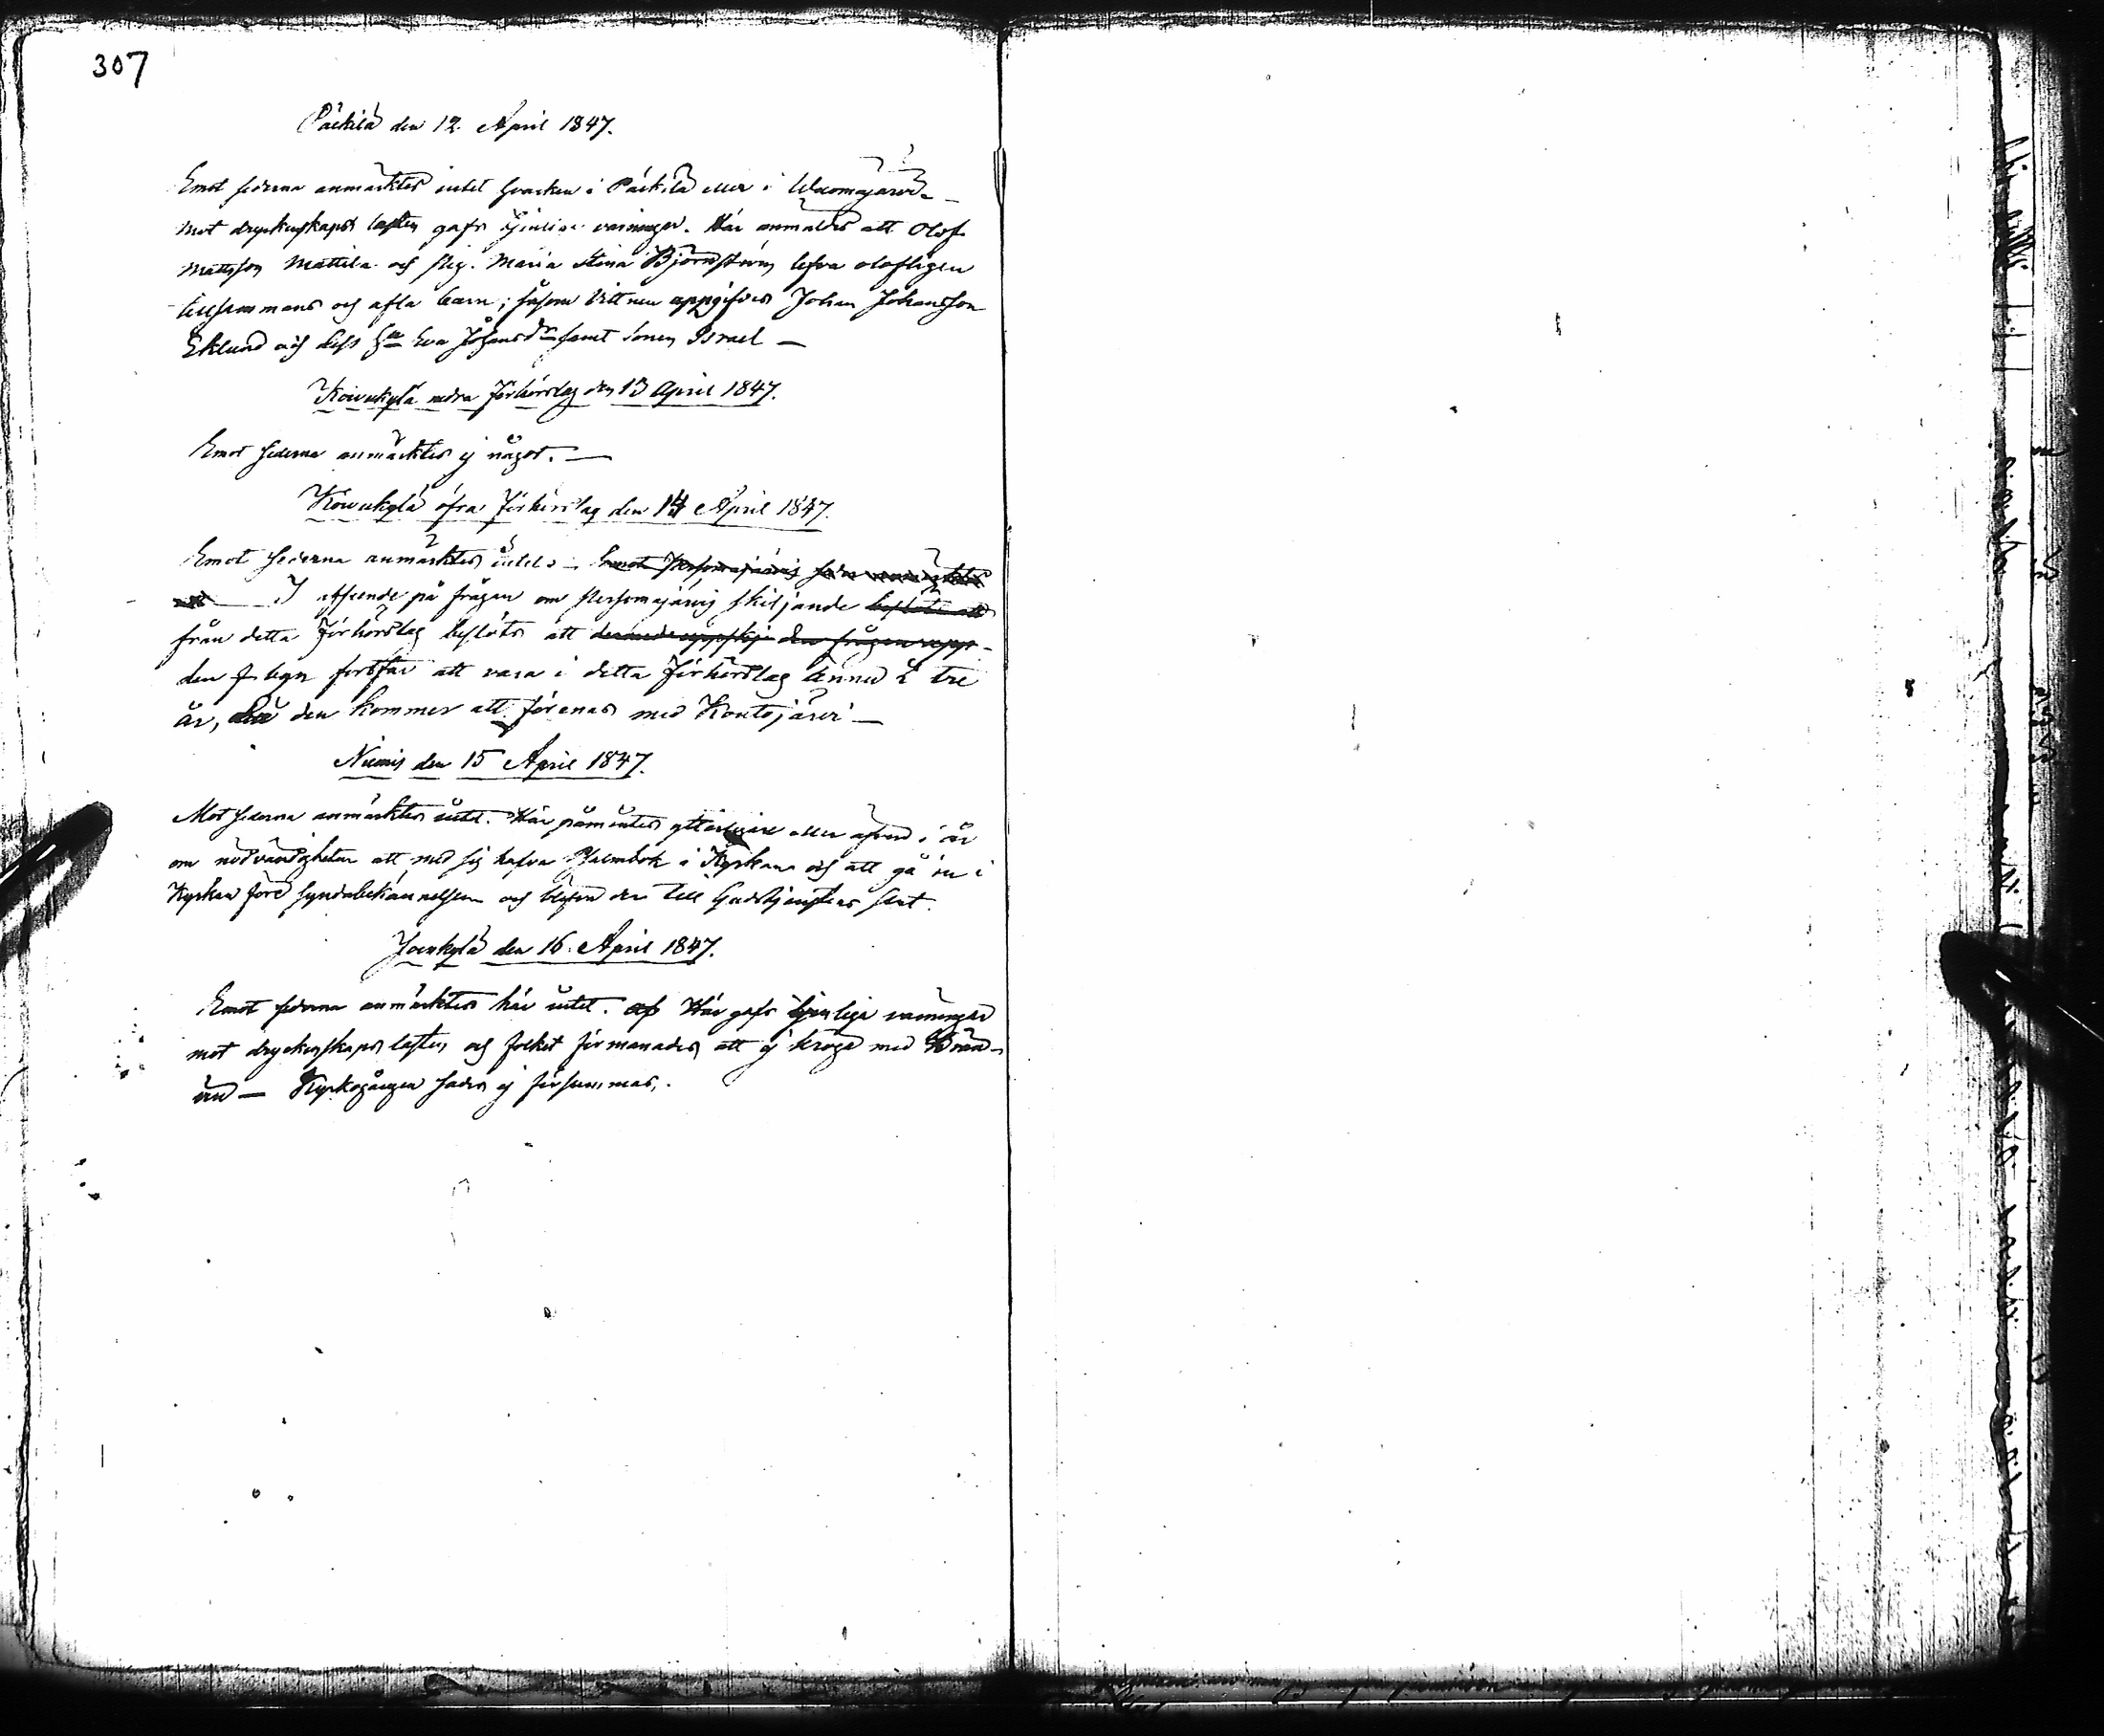 307
Päckilä den 12. April 1847.
Emot sederna anmärktes intet hvarken i Päckilä eller i Waomajärvi –
mot dryckenskaps lasten gafs tjenliga varningar. Här anmäldes att Olof
Mattsson Mattila och pig. Maria Stina Björnström lefva olofligen
tillsammans och afla barn; såsom Vittnen uppgifves Johan Johansson
Eklund och dess hu Eva Johansdr samt sonen Israel –
Koivukylä nedra Förhörslag den 13 April 1847.
Emot sederna anmärktes ej något. –
Koivukylä öfra Förhörslag den 14 April 1847.
Emot sederna anmärktes intet – Emot
I afseende på frågan om Persomajärvis skiljande beslöts att
från detta Förhörslag beslöts att den frågan upp-
den f. byn fortfar att vara i detta Förhörslag ännu i tre
år, då den kommer att förenas med Kontojärvi –
Niemis den 15 April 1847.
Mot sederna anmärktes intet. Här påmintes ytterligare i år
om nödvändigheten att med sig hafva Psalmbok i Kyrkan och att gå in i
Kyrkan före syndabekännelsen och blifva der till Gudstjenstens slut.
Joenkylä den 16. April 1847.
Emot sederna anmärktes här intet. af Här gafs tjenliga varningar
mot dryckenskaps lasten och folket förmanades att ej kröga med Brän-
vin – Kyrkogången sades ej försummas.